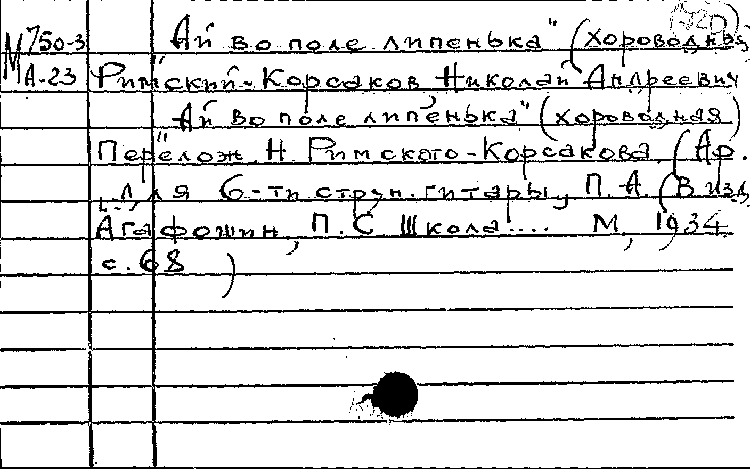 М 750-3 "Ай во поле липенька" (хороводная)
А-23 Римский-Корсаков Николай Андреевич
"Ай во поле липенька" (хороводная)
Перелож. Н. Римского-Корсакова (Ар.
для 6-ти струн. гитары, П. А. (В изд.
Агафошин, П. С Школа.... М, 1934
с. 68 )